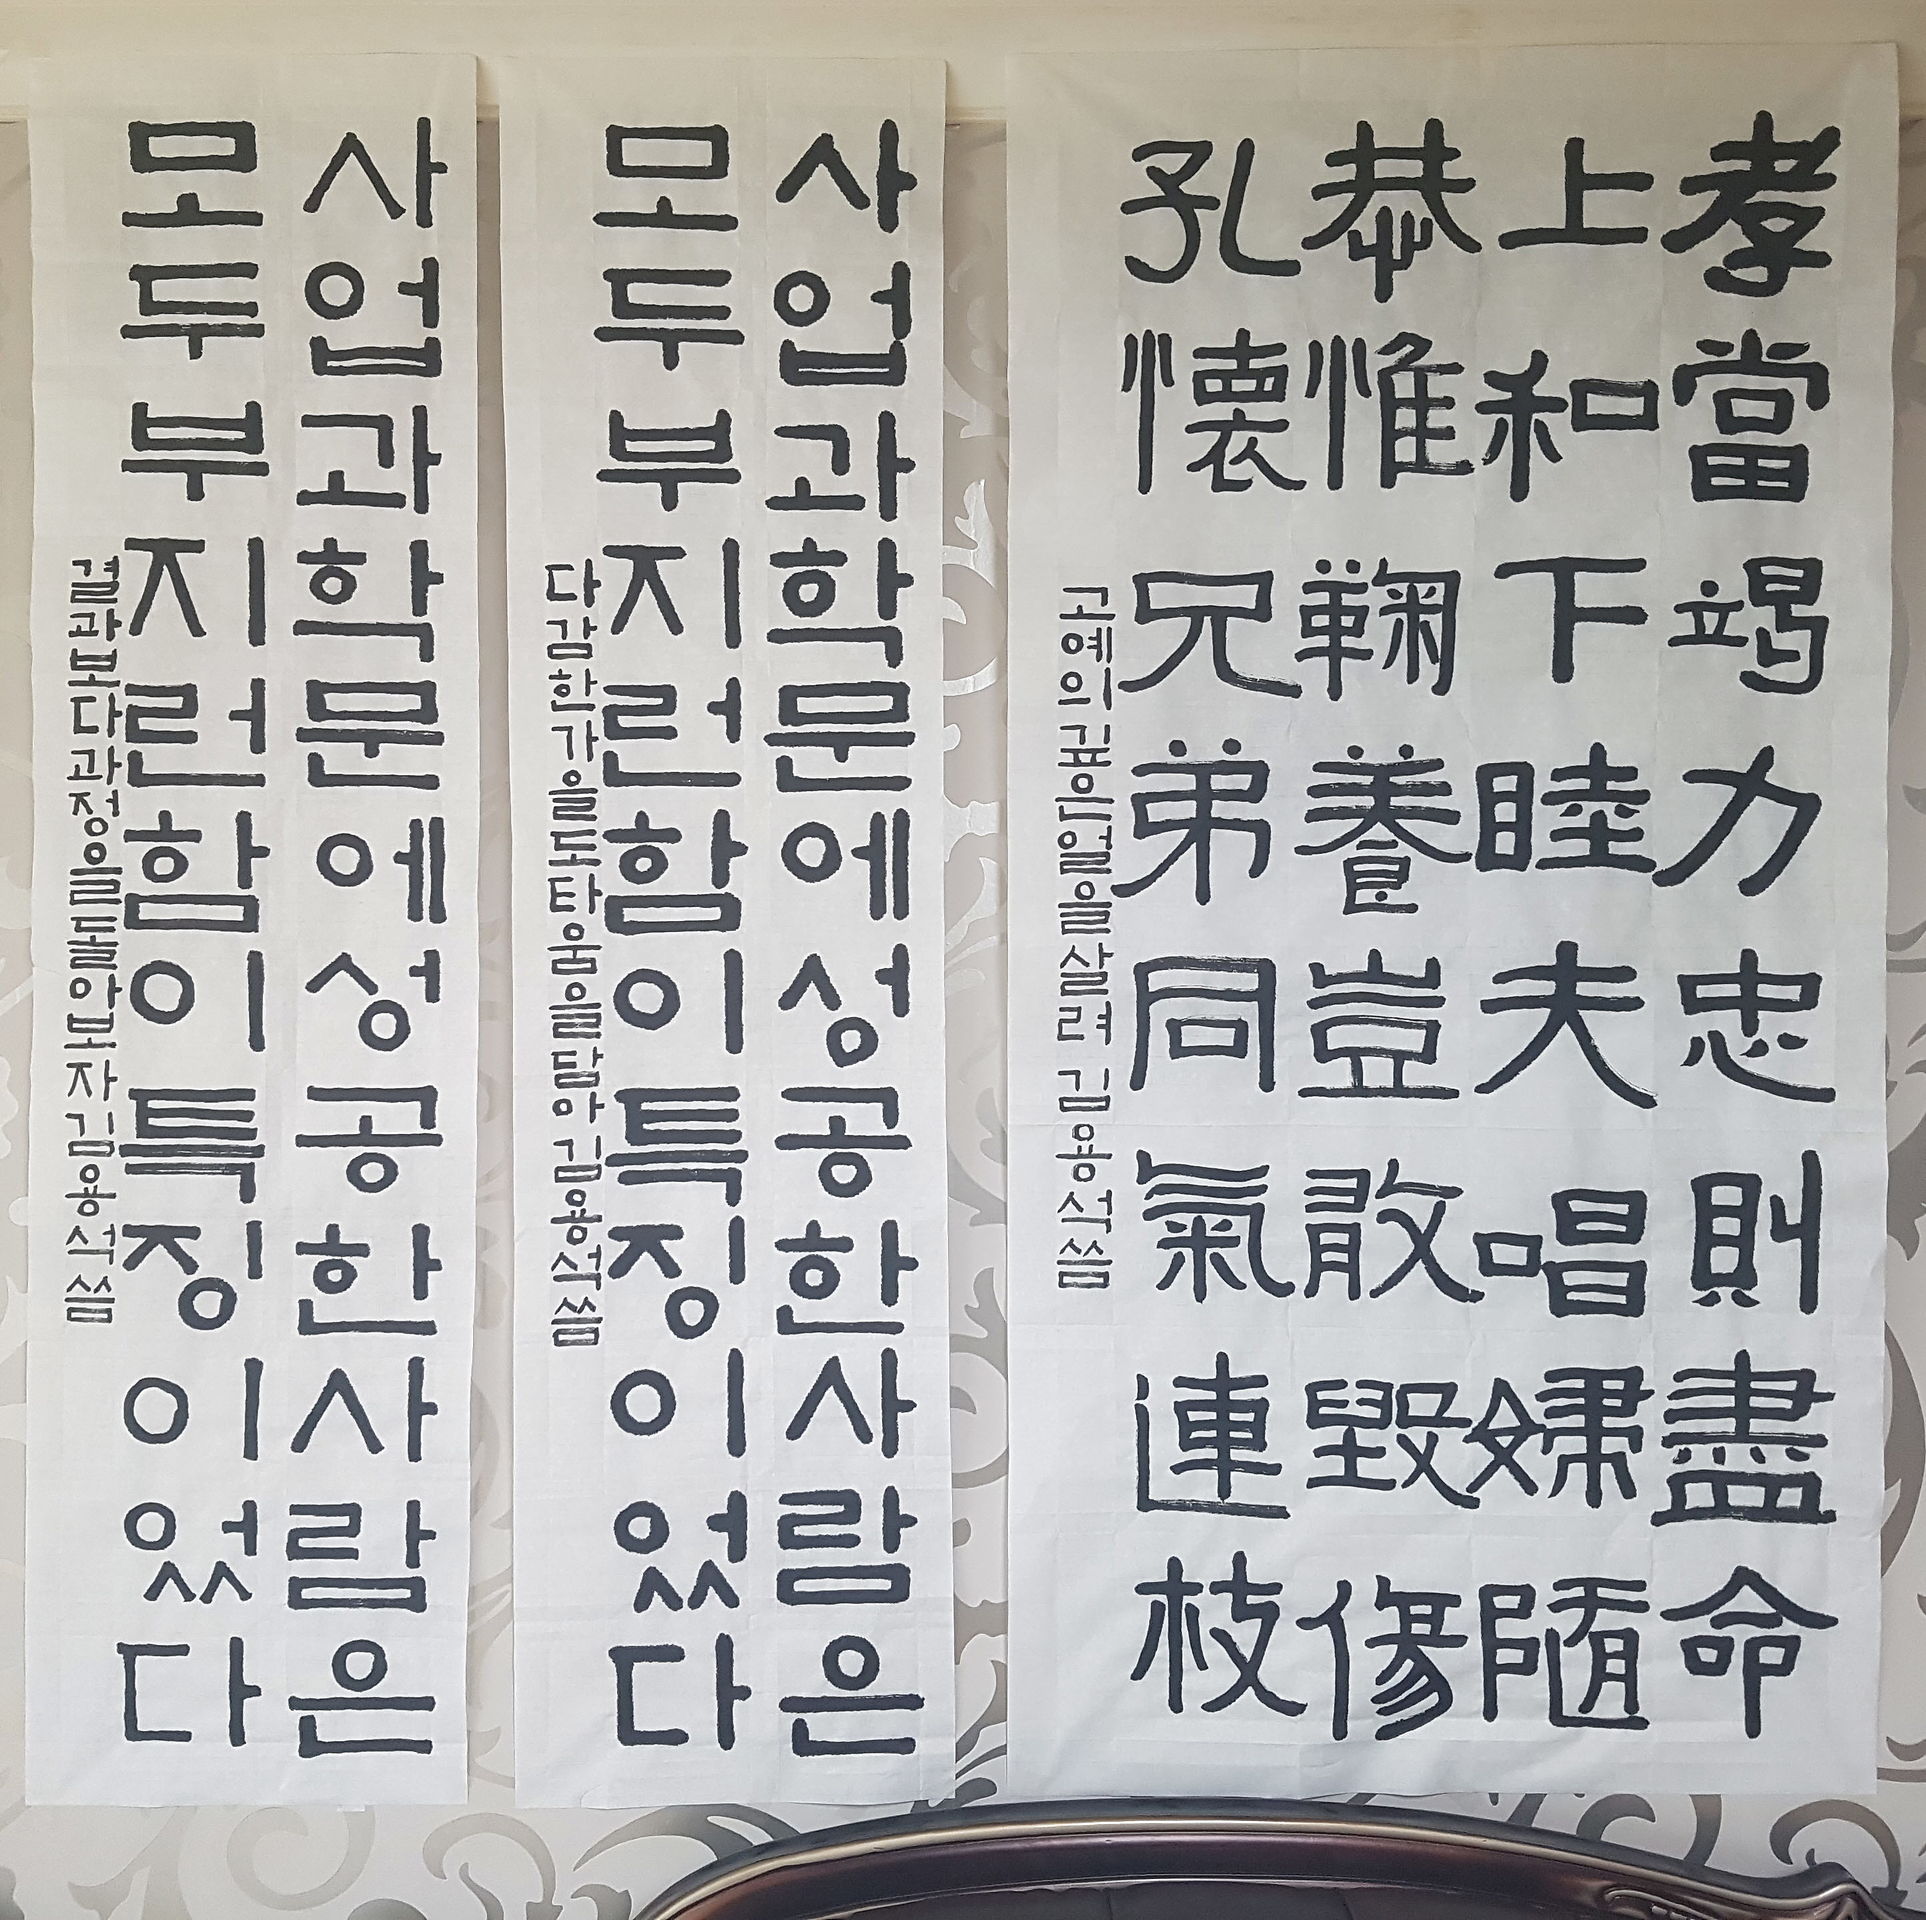 孝當竭力忠則盡命
上和下睦夫唱婦隨
恭惟鞠養豈敢毀傷
孔懷兄弟同氣連枝
고예의깊은얼을살려김용석씀
사업과학문에성공한사람은
모두부지런함이특징이었다
다감한가을도타움을담아김용석씀
사업과학문에성공한사람은
모두부지런함이특징이었다
결과보다과정을돌아보자김용석씀